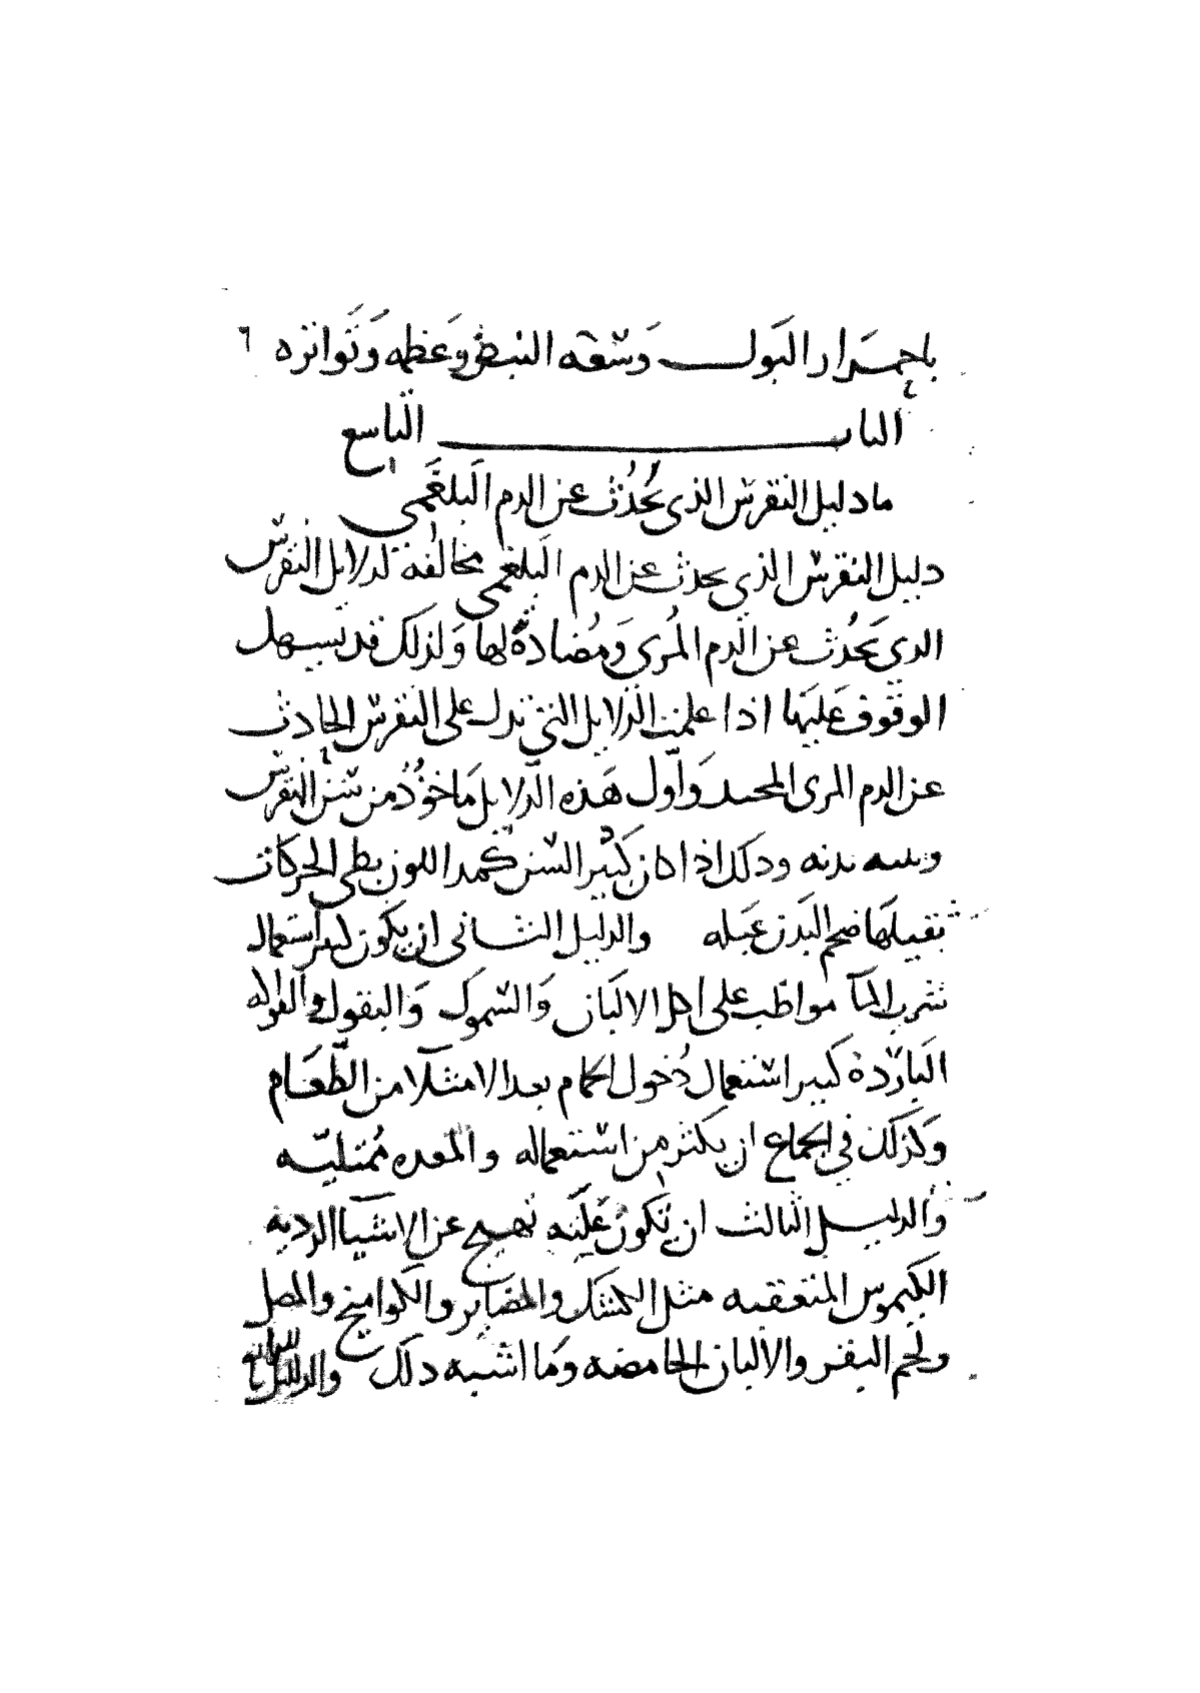 باحمرار البول وسعة النبض وعظمه وتواتره ٦
الباب التاسع
ما دليل النقرس الذى يحدث عن الدم البلغمى
دليل النقرس الذى يحدث عن الدم البلغمى مخالفة لدلايل النقرس
الذى يحدث عن الدم المرى ومضادة لها ولذلك قد تسهل
الوقوف عليها اذا علمت الدلايل التى تدل على النقرس الحادث
عن الدم المرى المحتد واول هذه الدلايل ماخوذ من سن النقرس
بدنه وذلك اذا كان كبير السن كمد اللون بطى الحركات
ثقيلها ضخم البدن عبله والدليل الثانى ان يكون كثير استعمال
شرب الما مواظب على اكل الالبان والسموك والبقول والفواكه
الباردة كثير استعمال دخول الحمام بعد الامتلا من الطعام
وكذلك فى الجماع ان يكثر من استعماله والمعده ممتليه
والدليل الثالث ان تكون علته تهيج عن الاشيا الرديه
الكيموس المتعفنه مثل الكشك والمضاير والكوامخ والمصل
ولحم البقر والالبان الحامضه وما اشبه ذلك والدليل